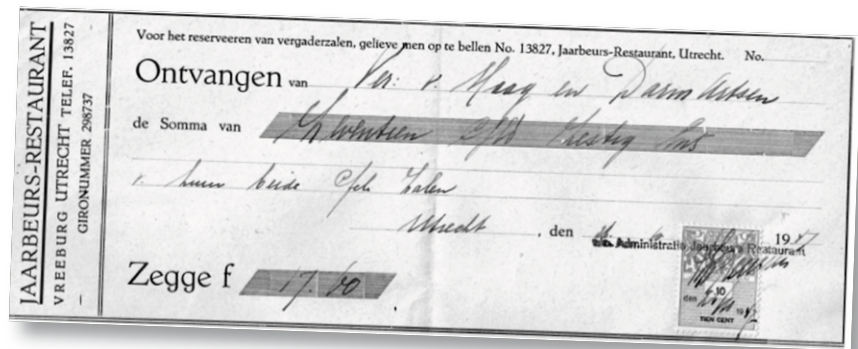 JAARBEURS-RESTAURANT
VREEBURG UTRECHT TELEF. 13827
— GIRONUMMER 298737
Voor het reserveeren van vergaderzalen, gelieve men op te bellen No. 13827, Jaarbeurs-Restaurant, Utrecht. No.
Ontvangen van Ver: v. Maag en Darm Artsen
de Somma van Zeventien Gld Zestig Cns
v. huur beide Zalen
Utrecht, den 19
Administratie Jaarbeurs Restaurant
Zegge f 17.60
10
den 19
TIEN CENT